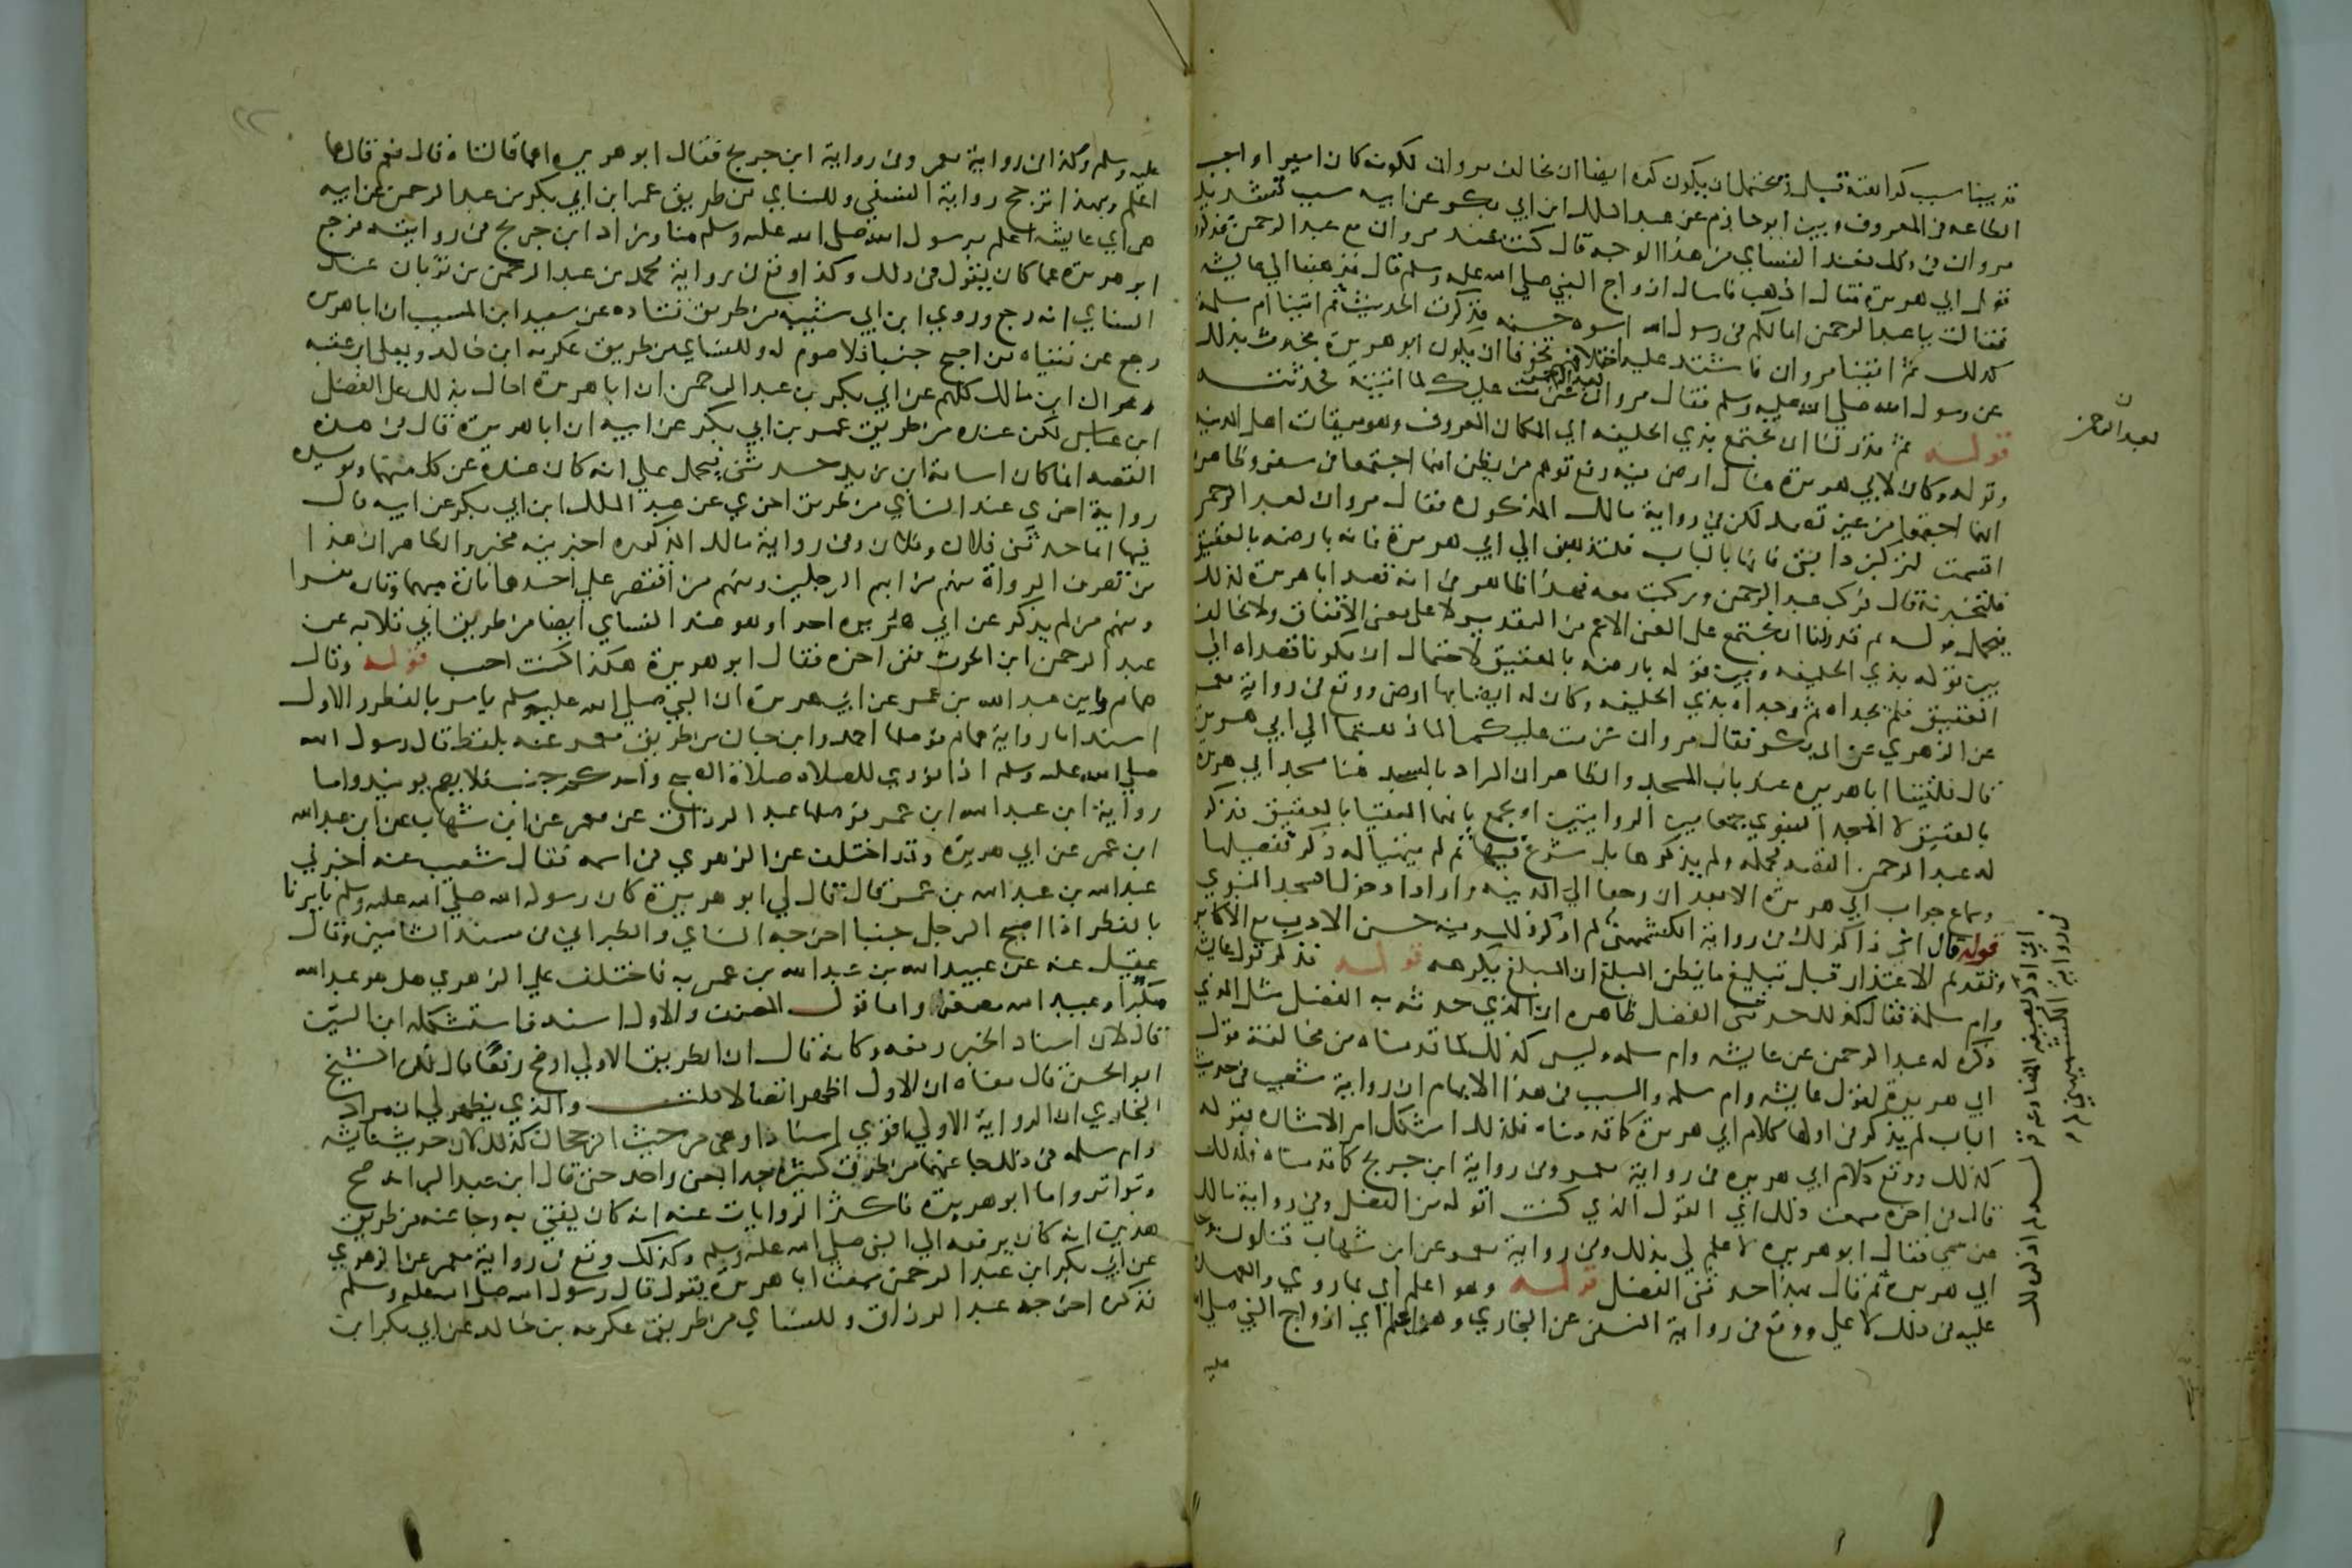 قد بينا سبب كراهته قيل ويحتمل ان يكون كره ايضا ان يخالف مروان لكونه كان اميرا واجب
الطاعه في المعروف وبين ابو حازم عن عبد الملك ابن ابي بكر عن ابيه سبب تشديد
مروان في ذلك فعند النساي من هذا الوجه قال كنت عند مروان مع عبد الرحمن فذكروا
قول ابي هريرة فقال اذهب فاسال ازواج النبي صلي الله عليه وسلم قال فذهبنا الي عايشه
فقالت يا عبد الرحمن اما لكم في رسول الله اسوه حسنه فذكرت الحديث ثم اتينا ام سلمة
كذلك ثم اتينا مروان فاشتد عليه اختلافهم تخوفا ان يكون ابو هريرة يحدث بذلك
عن رسول الله صلي الله عليه وسلم فقال مروان لعبد الرحمن عزمت عليك لما اتيته فحدثته
قوله ثم قدر لنا ان نجتمع بذي الحليفه اي المكان المعروف وهو ميقات اهل المدينه
وقوله وكان لابي هريرة هنالك ارض فيه رفع توهم من يظن انهما اجتمعا في سفر وظاهره
انهما اجتمعا من غير قصد لكن في رواية مالك المذكورة فقال مروان لعبد الرحمن
اقسمت لتركبن دابتي فانها بالباب فلتذهبن الي ابي هريرة فانه بارضه بالعقيق
فلتخبرنه قال فركب عبد الرحمن وركبت معه فهذا ظاهر في انه قصد ابا هريرة لذلك
فيحمل قوله ثم قدر لنا ان نجتمع علي المعني الاعم من التقدير لا علي معني الاتفاق ولا تخالف
بين قوله بذي الحليفه وبين قوله بارضه بالعقيق لاحتمال ان يكونا قصداه الي
العقيق فلم يجداه ثم وجداه بذي الحليفه وكان له ايضا بها ارض ووقع في رواية معمر
عن الزهري عن ابي بكر فقال مروان عزمت عليكما لما ذهبتما الي ابي هريرة
قال فلقينا ابا هريره عند باب المسجد والظاهر ان المراد بالمسجد هنا مسجد ابي هريرة
بالعقيق لا المسجد النبوي جمعا بين الروايتين او يجمع بانهما التقيا بالعقيق فذكر
له عبد الرحمن القصه مجمله ولم يذكرها بل شرع فيها ثم لم يتهيا له ذكر تفصيلها
وسماع جواب ابي هريرة الا بعد ان رجعا الي المدينه وارادا دخول المسجد النبوي
قوله قال اني ذاكر لك في رواية الكشميهني لم اذكره لك وفيه حسن الادب مع الاكابر
وتقديم الاعتذار قبل تبليغ ما يظن المبلغ ان المبلغ يكرهه قوله فذكر قول عايشه
وام سلمة فقال كذلك حدثني الفضل ظاهره ان الذي حدثه به الفضل مثل الذي
ذكره له عبد الرحمن عن عايشه وام سلمه وليس كذلك لما قدمناه من مخالفة قول
ابي هريرة لقول عايشه وام سلمه والسبب في هذا الابهام ان رواية شعيب في حديث
الباب لم يذكر في اولها كلام ابي هريرة كما قدمناه فلذلك اشكل امر الاشاره بقوله
كذلك ووقع كلام ابي هريره في رواية معمر وفي رواية ابن جريج كما قدمناه فلذلك
قال في اخره سمعت ذلك اي القول الذي كنت اقوله من الفضل وفي رواية مالك
عن سمي فقال ابو هريره لا علم لي بذلك وفي رواية معمر عن ابن شهاب فتلون وجه
ابي هريرة ثم قال هكذا حدثني الفضل قوله وهو اعلم اي بما روي والعهده
عليه في ذلك لا علي ووقع في رواية النسفي عن البخاري وهن اعلم اي ازواج النبي صلي الله
عليه
لعبد الرحمن
في رواية الكشميهني لم
عليه وسلم وكذا في رواية معمر وفي رواية ابن جريج فقال ابو هريره اهما قالتاه قال نعم قال هما
اعلم وبهذا ترجح رواية النسفي وللنساي من طريق عمر ابن ابي بكر بن عبد الرحمن عن ابيه
هي اي عايشه اعلم برسول الله صلي الله عليه وسلم منا وزاد ابن جريج في روايته فرجع
ابو هريرة عما كان يقول في ذلك وكذا وقع في رواية محمد بن عبد الرحمن بن ثوبان عند
النساي انه رجع وروي ابن ابي شيبه من طريق قتاده عن سعيد ابن المسيب ان ابا هريره
رجع عن فتياه من اصبح جنبا فلا صوم له وللنساي من طريق عكرمه ابن خالد ويعلي ابن عقبه
وعراك ابن مالك كلهم عن ابي بكر بن عبد الرحمن ان ابا هريرة احال بذلك علي الفضل
ابن عباس لكن عنده من طريق عمر بن ابي بكر عن ابيه ان ابا هريرة قال في هذه
القصه انما كان اسامة ابن زيد حدثني فيحمل علي انه كان عنده عن كل منهما ويويده
رواية اخري عند النساي من طريق اخري عن عبد الملك ابن ابي بكر عن ابيه قال
فيها انما حدثني فلان وفلان وفي رواية مالك المذكوره اخبرنيه مخبر والظاهر ان هذا
من تصرف الرواة منهم من ابهم الرجلين ومنهم من اقتصر علي احدهما تارة مبهما وتاره مفسرا
ومنهم من لم يذكر عن ابي هريره احدا وهو عند النساي ايضا من طريق ابي قلابه عن
عبد الرحمن ابن الحرث ففي اخره فقال ابو هريرة هكذا كنت احسب قوله وقال
همام وابن عبد الله بن عمر عن ابي هريرة ان النبي صلي الله عليه وسلم يامر بالفطر والاول
اسند اما رواية همام فوصلها احمد وابن حبان من طريق معمر عنه بلفظ قال رسول الله
صلي الله عليه وسلم اذا نودي للصلاه صلاة الصبح واحدكم جنب فلا يصم يوميذ واما
رواية ابن عبد الله ابن عمر فوصلها عبد الرزاق عن معمر عن ابن شهاب عن ابن عبد الله
ابن عمر عن ابي هريرة وقد اختلف عن الزهري في اسمه فقال شعيب عنه اخبرني
عبد الله بن عبد الله بن عمر قال قال لي ابو هريرة كان رسول الله صلي الله عليه وسلم يامرنا
بالفطر اذا اصبح الرجل جنبا اخرجه النساي والطبراني في مسند الشاميين وقال
عقيل عنه عن عبيد الله بن عبد الله بن عمر به فاختلف علي الزهري هل هو عبد الله
مكبرا او عبيد الله مصغرا واما قول المصنف والاول اسند فاستشكله ابن التين
قال لان اسناد الخبر رفعه وكانه قال ان الطريق الاولي اوضح رفعا قال لكن الشيخ
ابو الحسن قال معناه ان الاول اظهر اتصالا قلت والذي يظهر لي ان مراد
البخاري ان الرواية الاولي اقوي اسنادا وهي من حيث الرجحان كذلك لان حديث عايشه
وام سلمه في ذلك جا عنهما من طرق كثيرة جدا بمعني واحد حتي قال ابن عبد البر انه صح
وتواتر واما ابو هريرة فاكثر الروايات عنه انه كان يفتي به وجا عنه من طريق
هذين انه كان يرفعه الي النبي صلي الله عليه وسلم وكذلك وقع في رواية معمر عن الزهري
عن ابي بكر ابن عبد الرحمن سمعت ابا هريرة يقول قال رسول الله صلي الله عليه وسلم
فذكره اخرجه عبد الرزاق وللنساي من طريق عكرمه بن خالد عن ابي بكر ابن